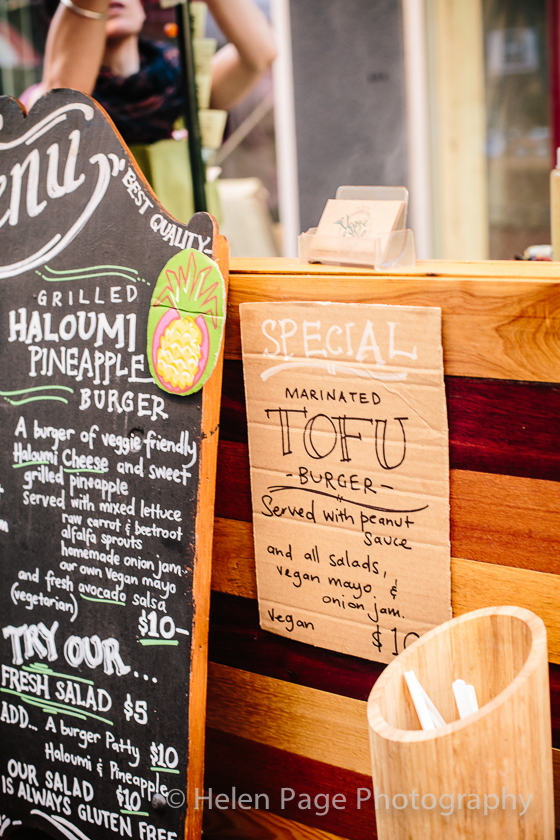 enu
"BEST QUALITY"
GRILLED
HALOUMI
PINEAPPLE
BURGER
A burger of veggie friendly
Haloumi Cheese and sweet
grilled pineapple
Served with mixed lettuce
raw carrot & beetroot
alfalfa sprouts
homemade onion jam.
our own vegan mayo
and fresh avocado salsa
(vegetarian)
$10-
TRY OUR...
FRESH SALAD $5
ADD... A burger Patty $10
Haloumi & Pineapple $10
OUR SALAD
IS ALWAYS GLUTEN FREE
SPECIAL
MARINATED
TOFU
-BURGER-
Served with peanut
sauce
and all salads,
vegan mayo, &
onion jam.
Vegan $10
© Helen Page Photography